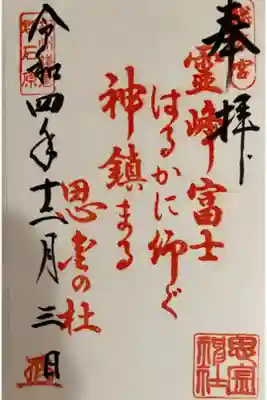 奉拝
靈峰富士
はるかに仰ぐ
神鎮まる
思金の杜
令和四年十二月三日
思金
神社